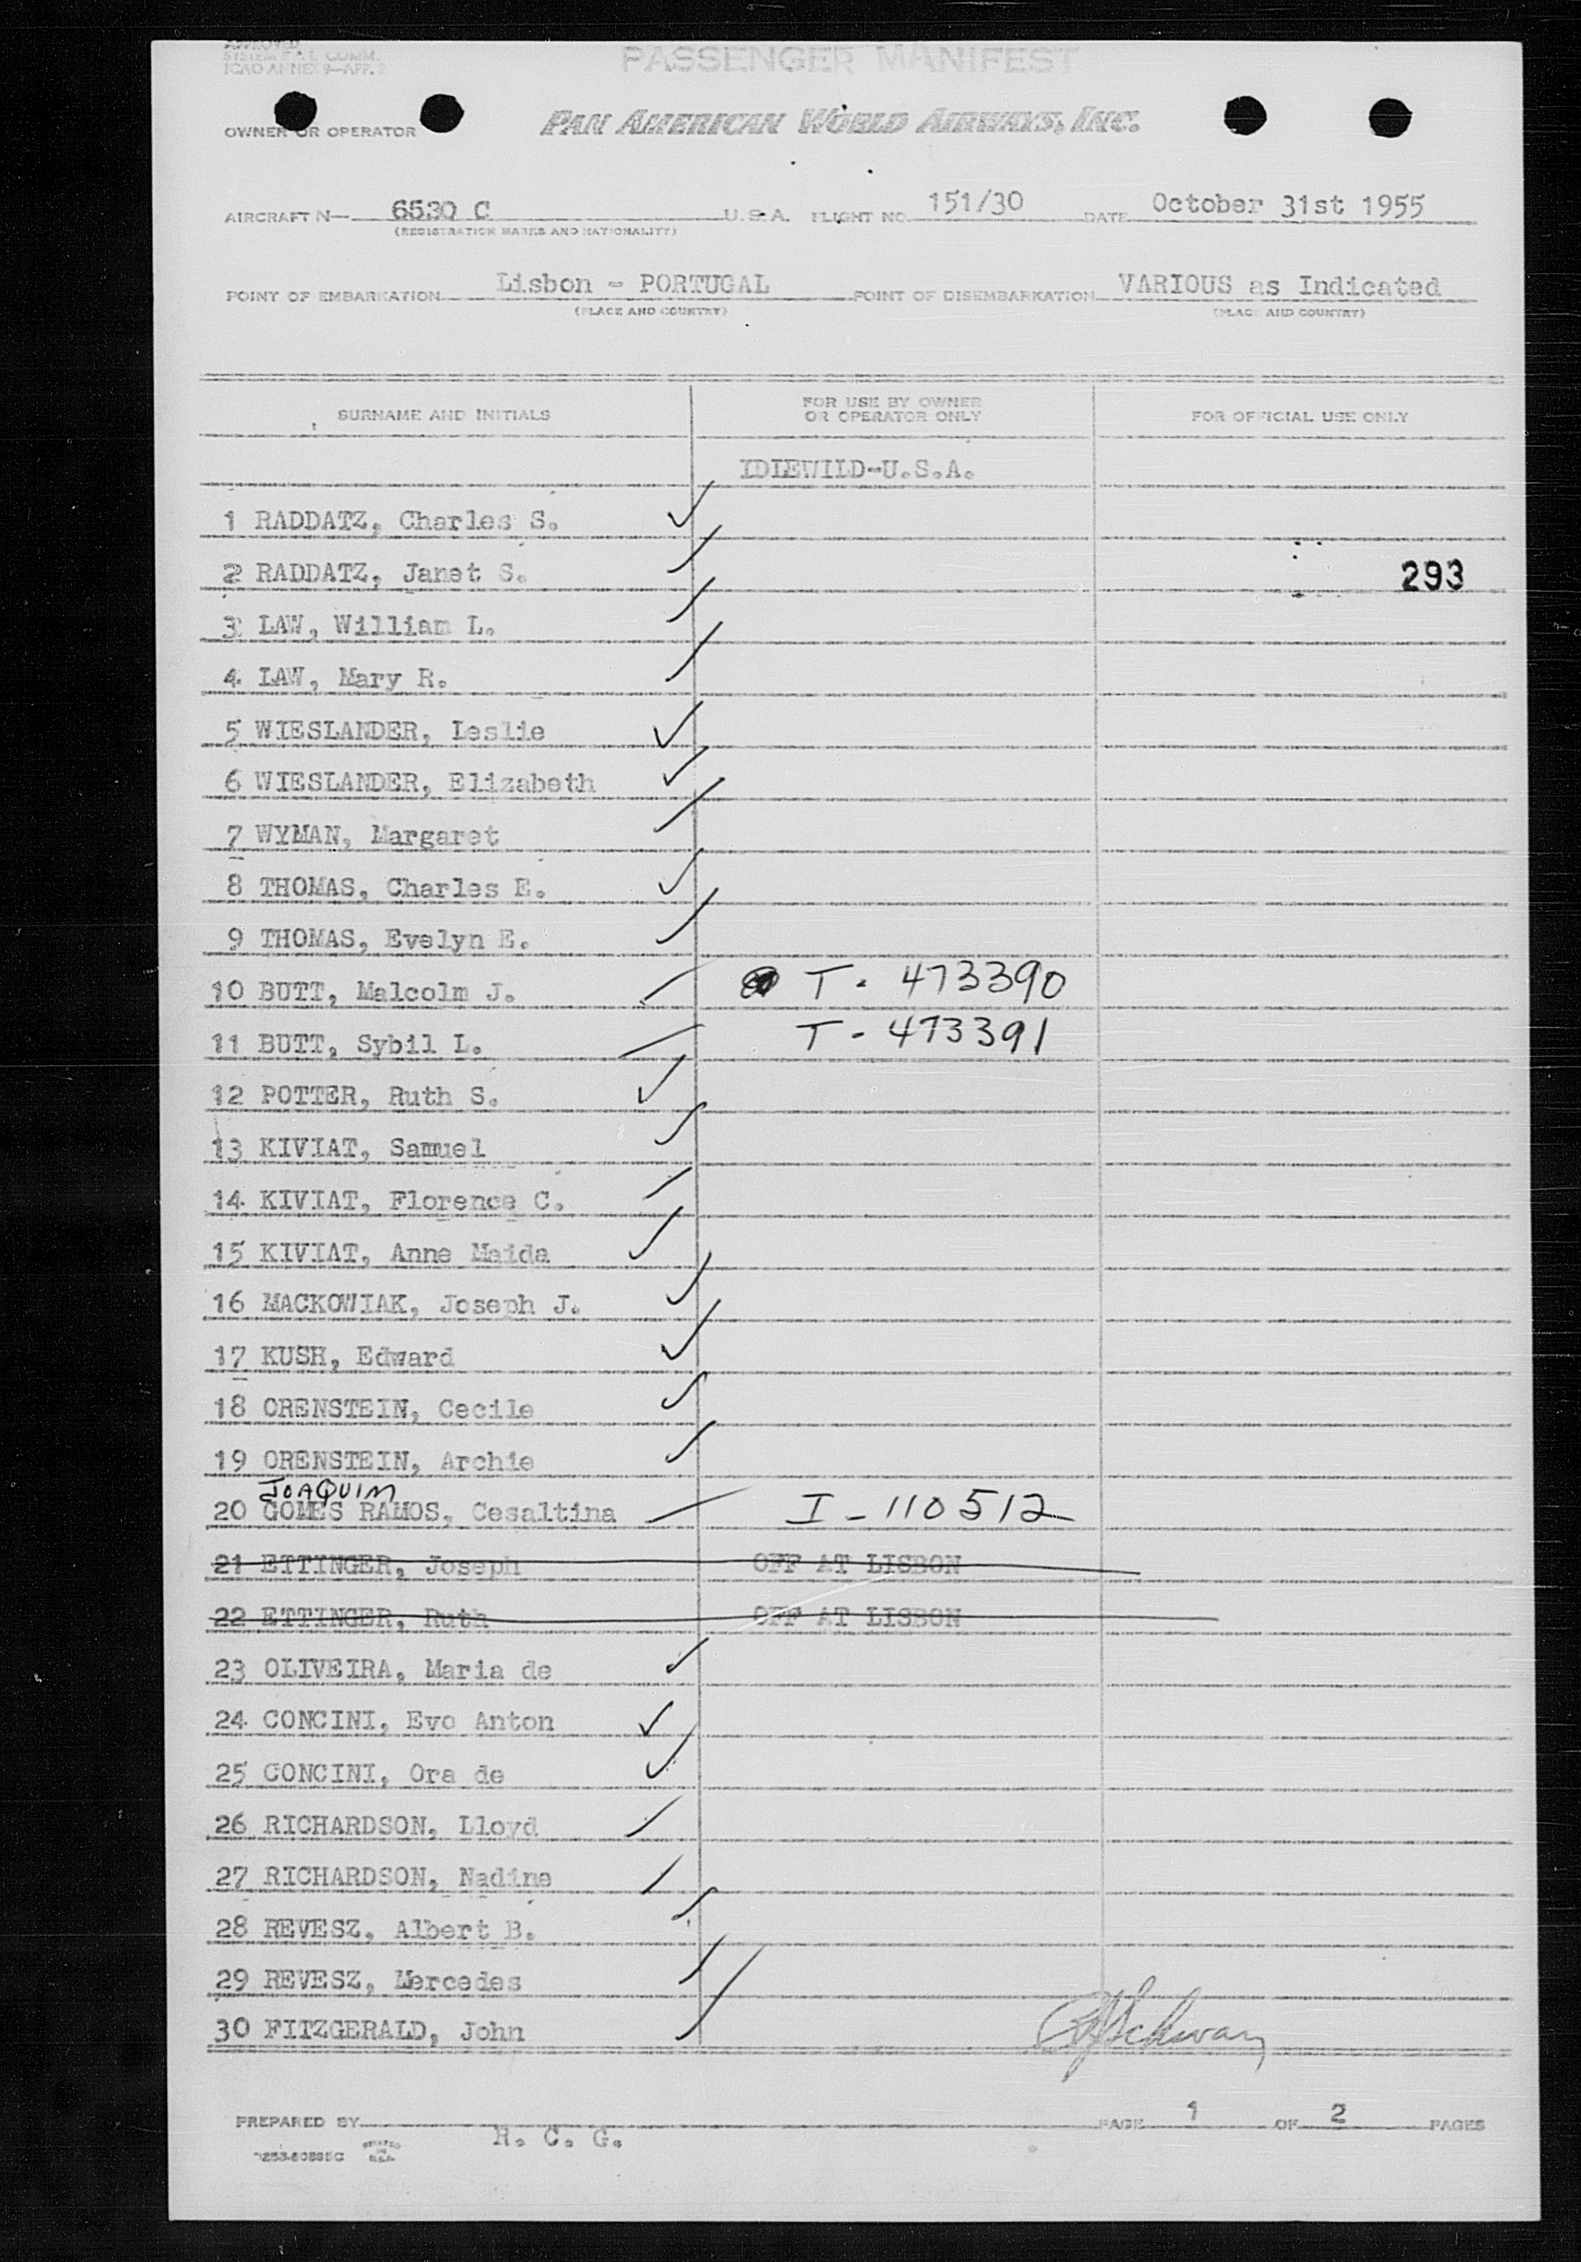 APPROVED
SYSTEM F.A.L. COMM.
ICAO ANNEX 9—APP. 2
PASSENGER MANIFEST
OWNER OR OPERATOR PAN AMERICAN WORLD AIRWAYS, INC.
AIRCRAFT N— 6530 C U.S.A. FLIGHT NO. 151/30 DATE October 31st 1955
(REGISTRATION MARKS AND NATIONALITY)
POINT OF EMBARKATION Lisbon - PORTUGAL POINT OF DISEMBARKATION VARIOUS as Indicated
(PLACE AND COUNTRY) (PLACE AND COUNTRY)
SURNAME AND INITIALS FOR USE BY OWNER OR OPERATOR ONLY FOR OFFICIAL USE ONLY
IDLEWILD-U.S.A.
1 RADDATZ, Charles S.
2 RADDATZ, Janet S. 293
3 LAW, William L.
4 LAW, Mary R.
5 WIESLANDER, Leslie
6 WIESLANDER, Elizabeth
7 WYMAN, Margaret
8 THOMAS, Charles E.
9 THOMAS, Evelyn E.
10 BUTT, Malcolm J. T. 473390
11 BUTT, Sybil L. T - 473391
12 POTTER, Ruth S.
13 KIVIAT, Samuel
14 KIVIAT, Florence C.
15 KIVIAT, Anne Maida
16 MACKOWIAK, Joseph J.
17 KUSH, Edward
18 ORENSTEIN, Cecile
19 ORENSTEIN, Archie
JOAQUIM
20 GOMES RAMOS, Cesaltina I - 110512
21 ETTINGER, Joseph OFF AT LISBON
22 ETTINGER, Ruth OFF AT LISBON
23 OLIVEIRA, Maria de
24 CONCINI, Evo Anton
25 CONCINI, Ora de
26 RICHARDSON, Lloyd
27 RICHARDSON, Nadine
28 REVESZ, Albert B.
29 REVESZ, Mercedes
30 FITZGERALD, John
PREPARED BY R. C. G. PAGE 1 OF 2 PAGES
PRINTED IN U.S.A.